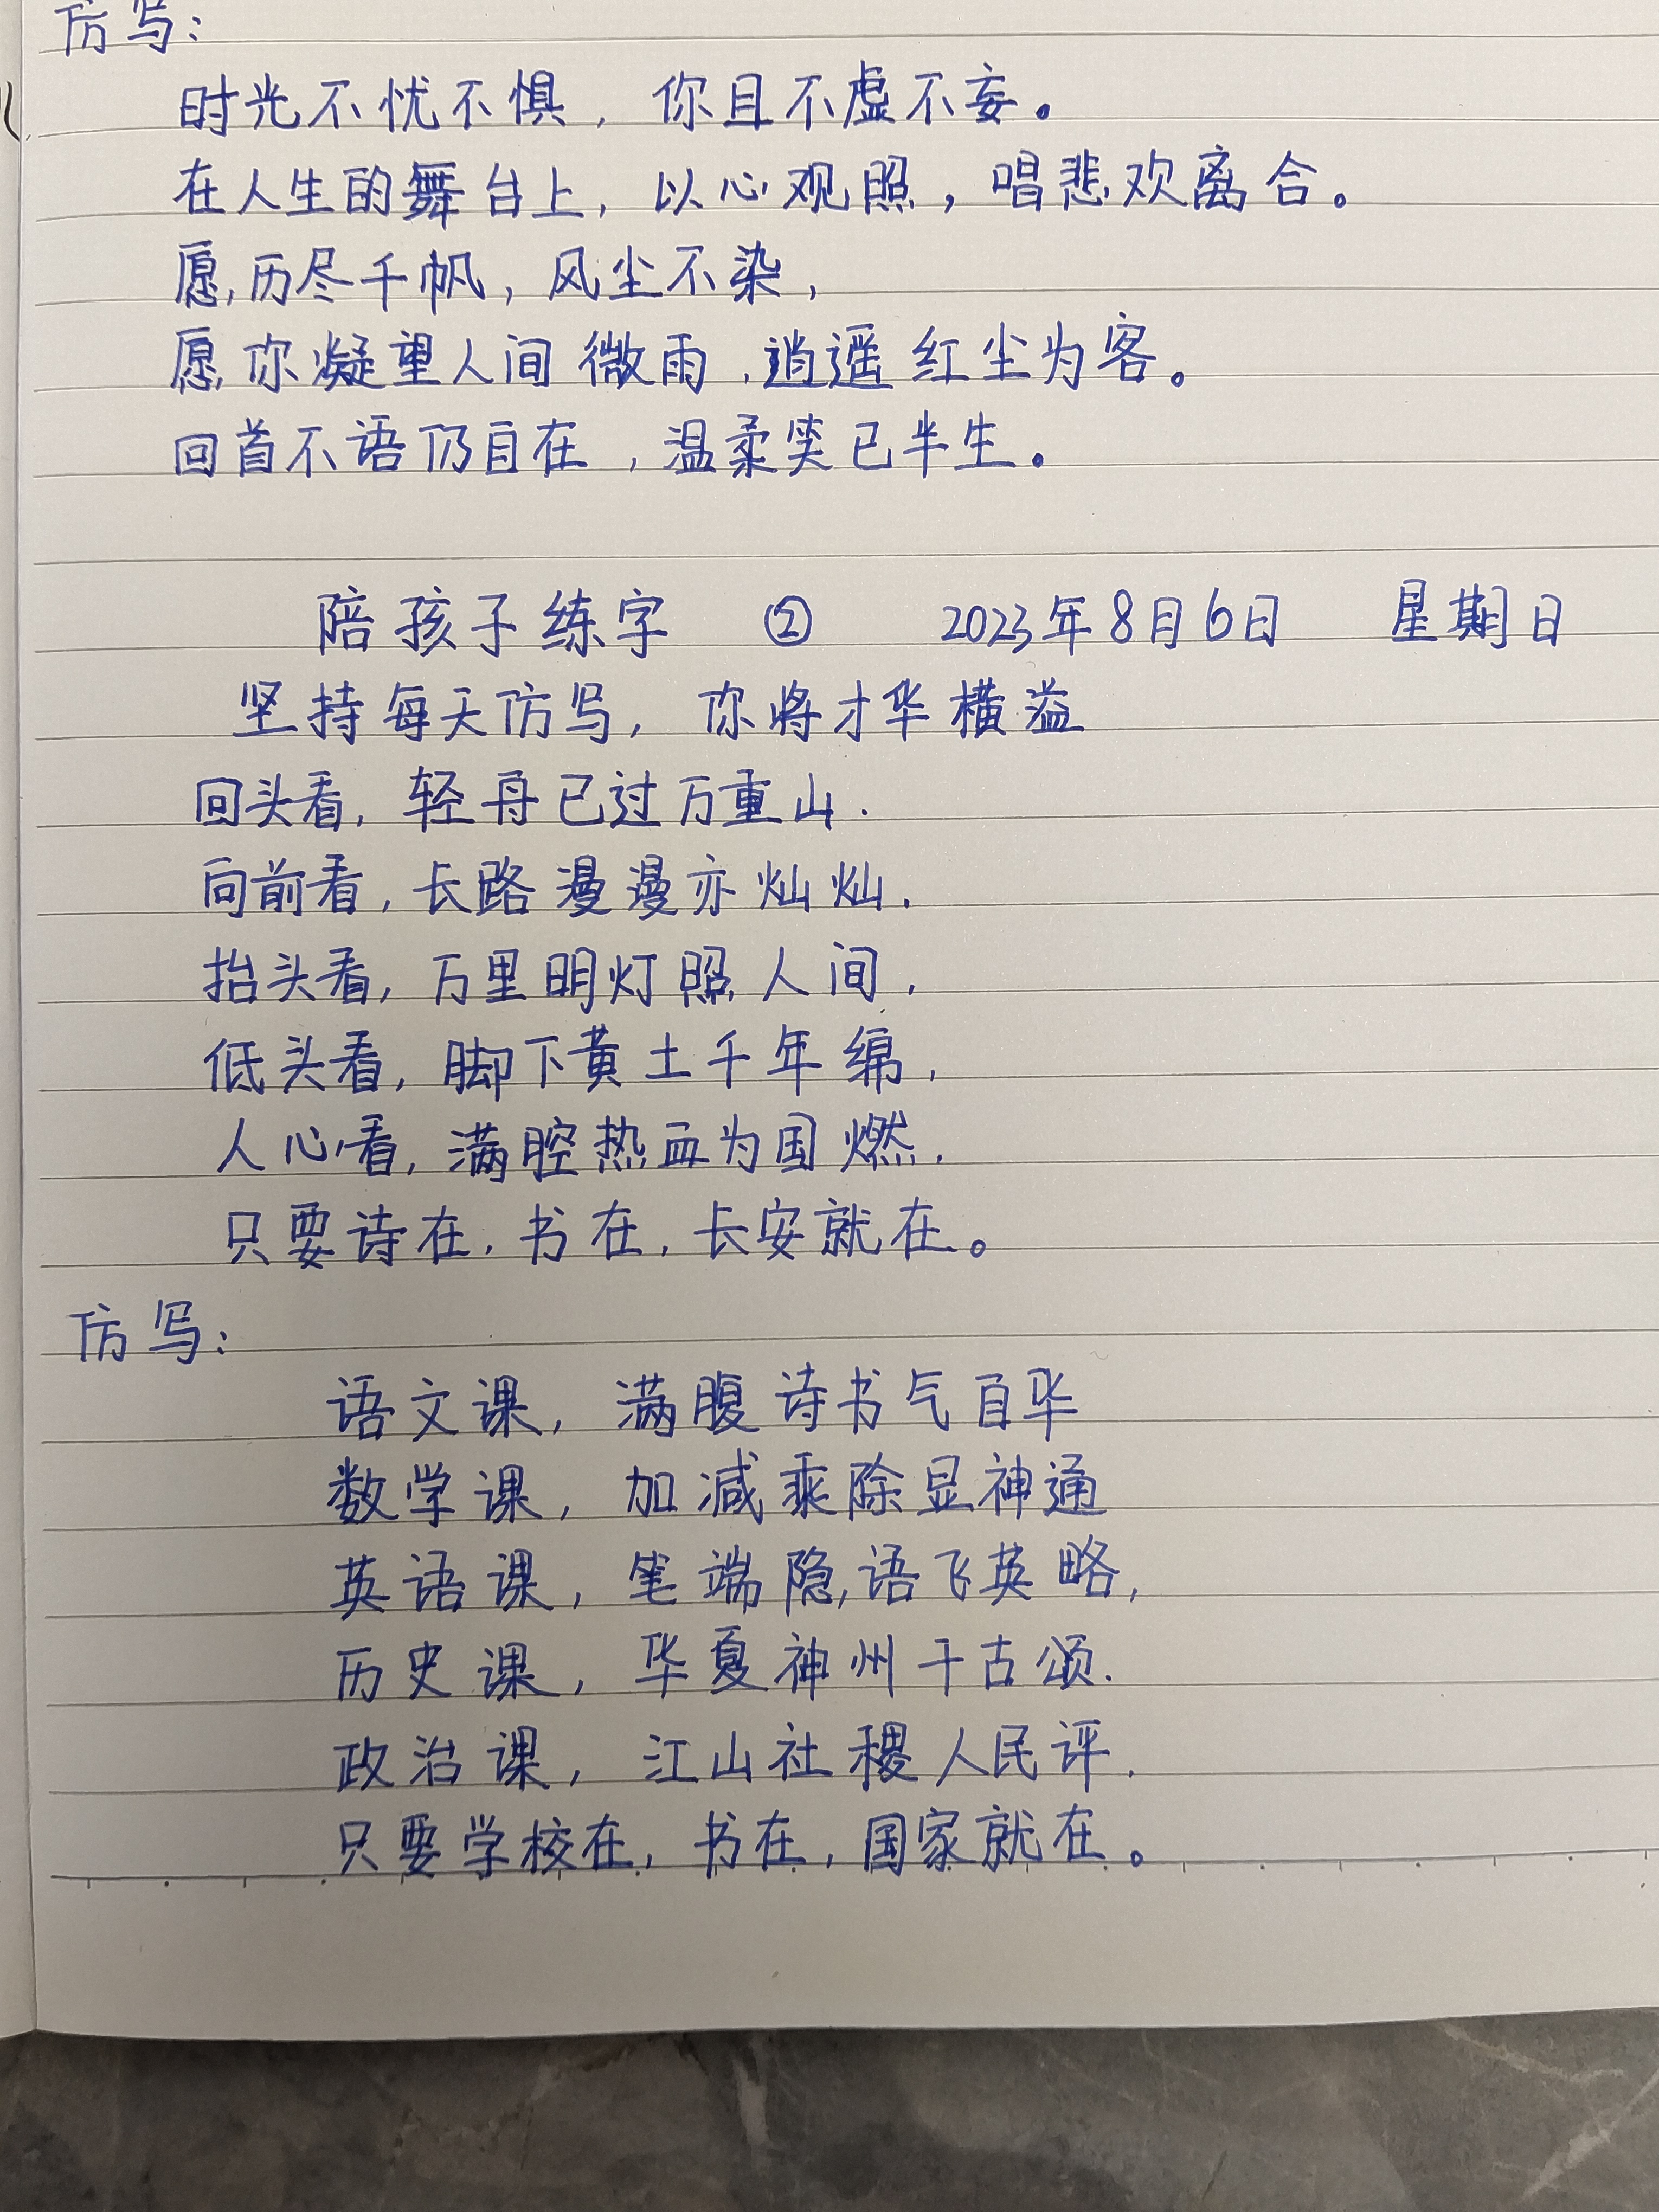 仿写：
时光不忧不惧，你且不虚不妄。
在人生的舞台上，以心观照，唱悲欢离合。
愿，历尽千帆，风尘不染，
愿，你凝望人间微雨，逍遥红尘为客。
回首不语仍自在，温柔笑已半生。
陪孩子练字 ② 2023年8月6日 星期日
坚持每天仿写，你将才华横溢
回头看，轻舟已过万重山.
向前看，长路漫漫亦灿灿.
抬头看，万里明灯照人间，
低头看，脚下黄土千年绵，
人心看，满腔热血为国燃，
只要诗在，书在，长安就在。
仿写：
语文课，满腹诗书气自华
数学课，加减乘除显神通
英语课，笔端隐语飞英略，
历史课，华夏神州千古颂.
政治课，江山社稷人民评.
只要学校在，书在，国家就在。